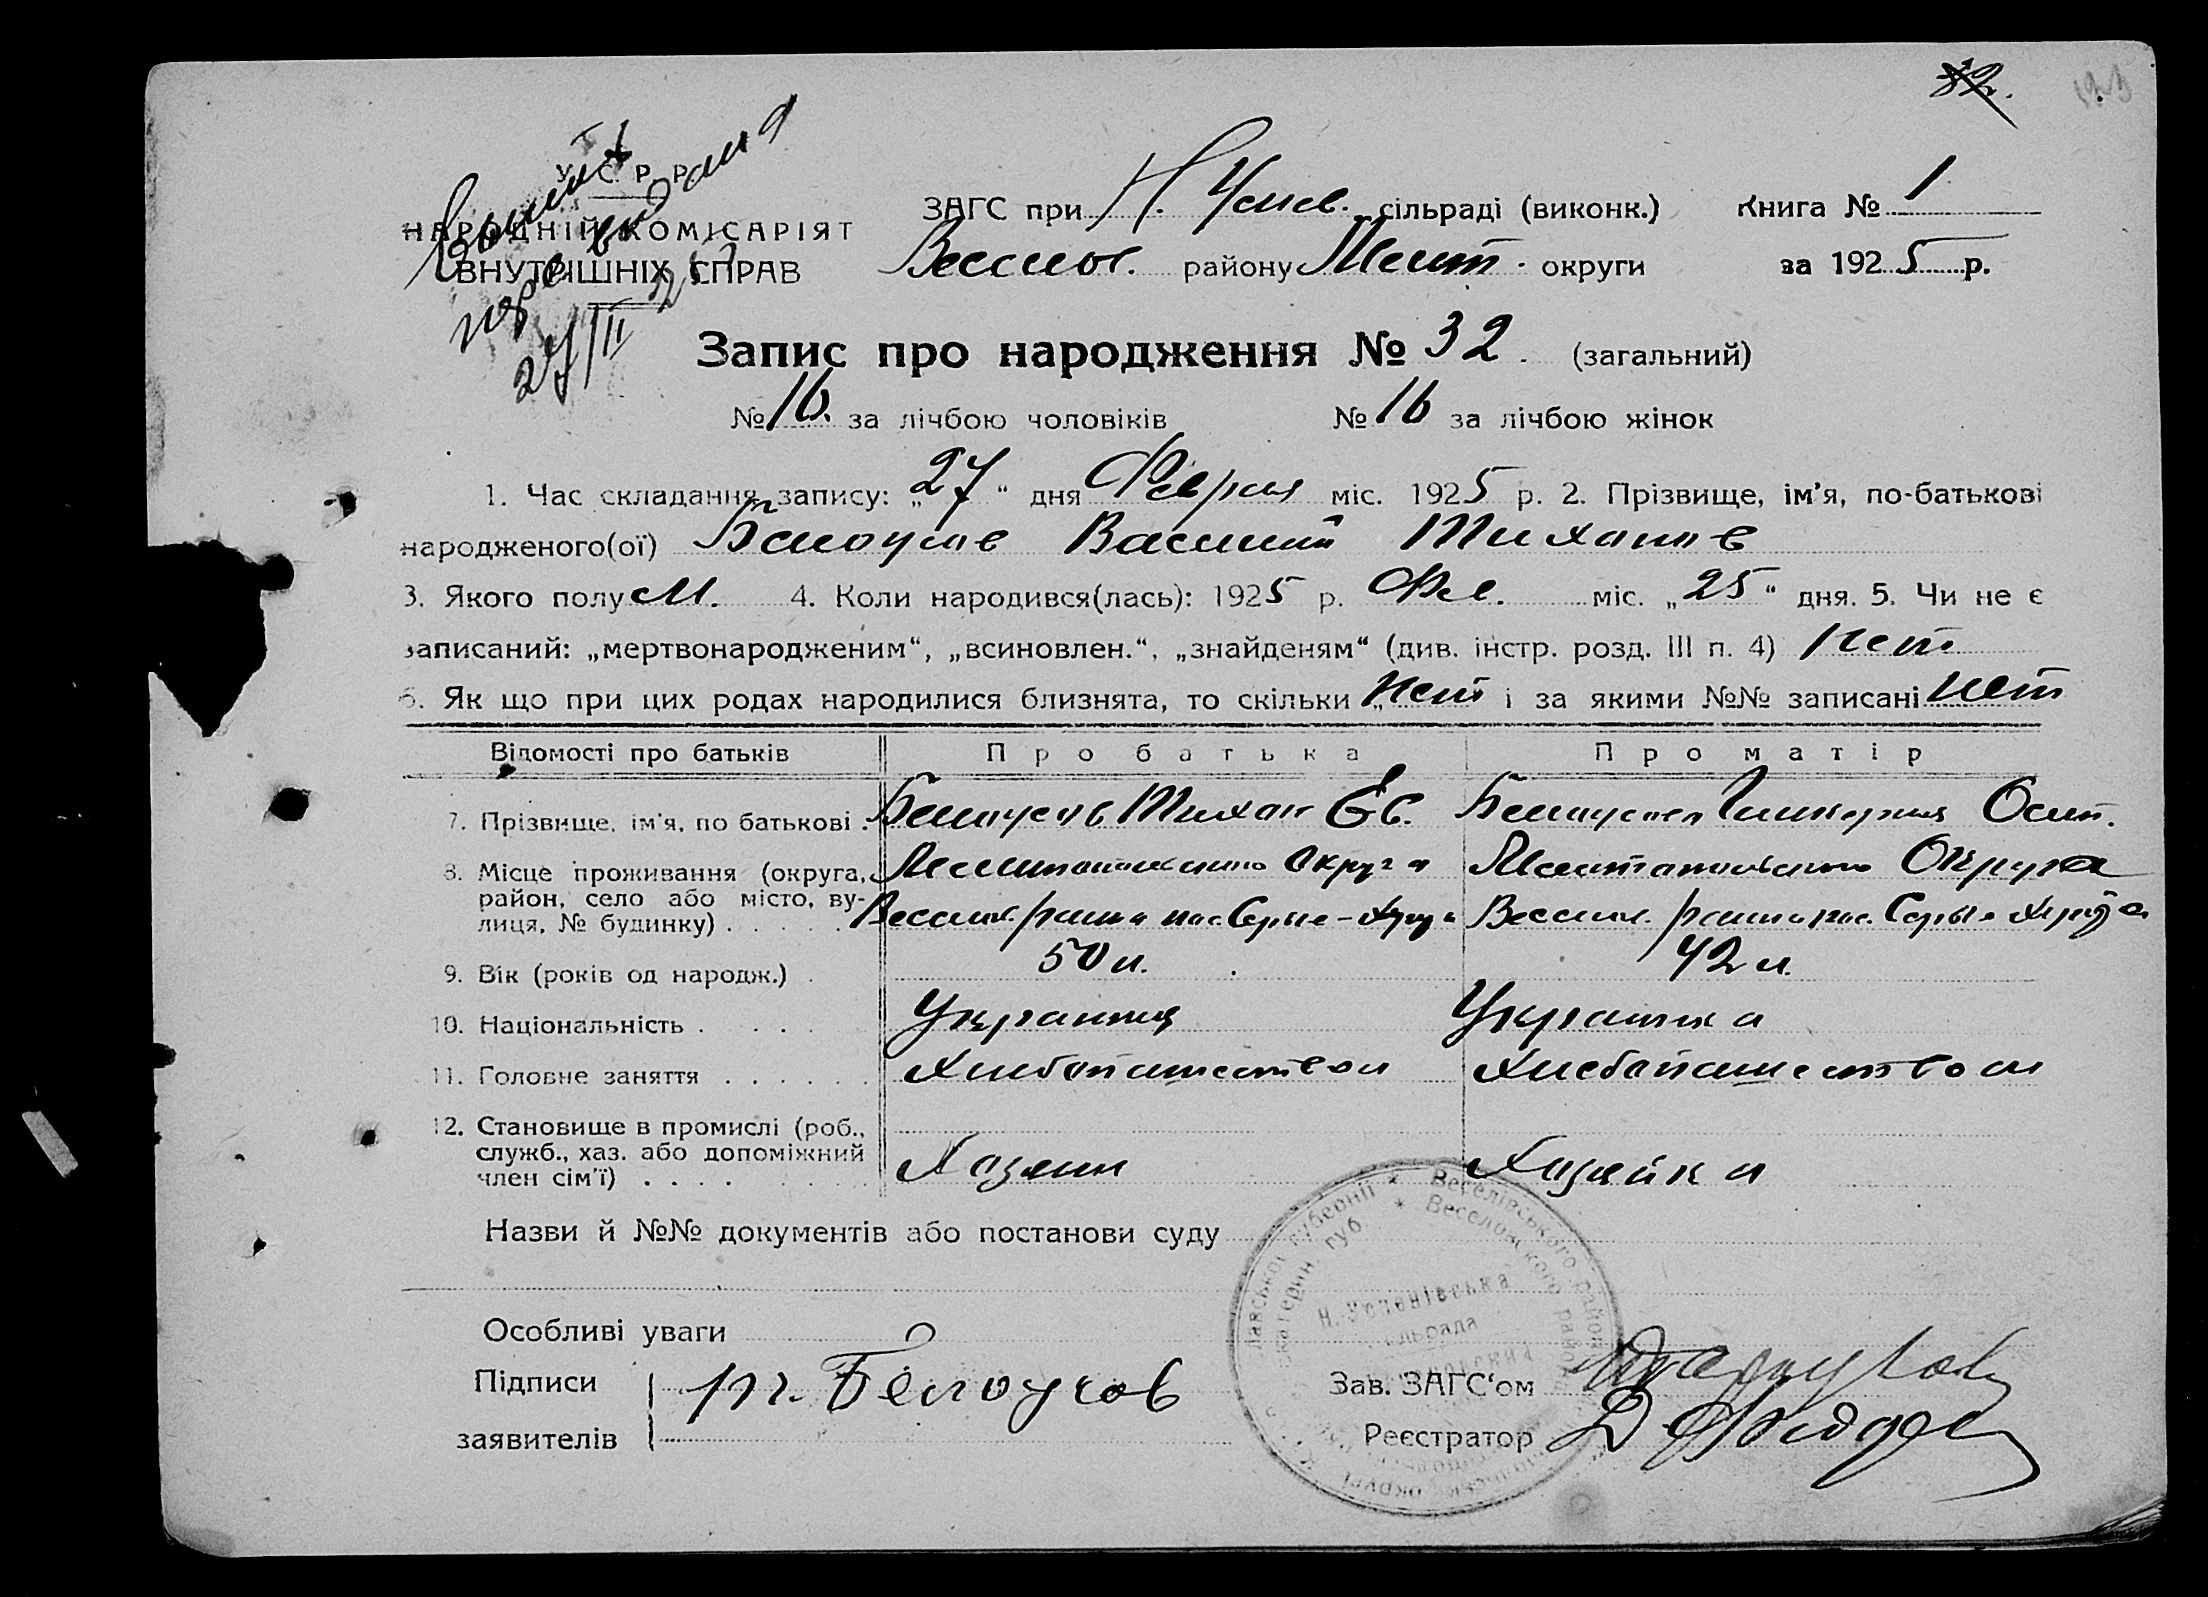 32.
У. С. Р. Р.
НАРОДНІЙ КОМІСАРІЯТ
ВНУТРІШНІХ СПРАВ
27/II 25
ЗАГС при Н. Успев. сільраді (виконк.) Книга № 1
Весело. району Мелит. округи за 1925 р.
Запис про народження № 32. (загальний)
№ 16. за лічбою чоловіків № 16 за лічбою жінок
1. Час складання запису: „27“ дня Февраля міс. 1925 р. 2. Прізвище, ім’я, по-батькові
народженого(ої) Белоусов Василий Тихонов
3. Якого полу М. 4. Коли народився(лась): 1925 р. Фев. міс. „25“ дня. 5. Чи не є
записаний: „мертвонародженим“, „всиновлен.“, „знайденям“ (див. інстр. розд. III п. 4) нет
6. Як що при цих родах народилися близнята, то скільки „нет і за якими №№ записані нет
Відомості про батьків Про батька Про матір
7. Прізвище, ім’я, по батькові . Белоусов Тихон Ев. Белоусова Гликерия Осип.
8. Місце проживання (округа, Мелитопольского Округа Мелитопольского Округа
район, село або місто, ву-
лиця, № будинку) . . . . . Весело. района пос. Серые-Хутора Весело. района пос. Серые Хутора
9. Вік (років од народж.) . 50 л. 42 л.
10. Національність . . . . Украинец Украинка
11. Головне заняття . . . . . . Хлебопашеством Хлебопашеством
12. Становище в промислі (роб.,
служб., хаз. або допоміжний
член сім’ї) . . . . Хозяин Хозяйка
Назви й №№ документів або постанови суду
Особливі уваги
Підписи т. Белоусов Зав. ЗАГС‘ом
заявителів Реєстратор
Веселівського району
Веселовского района
Н. Успенівська
сільрада